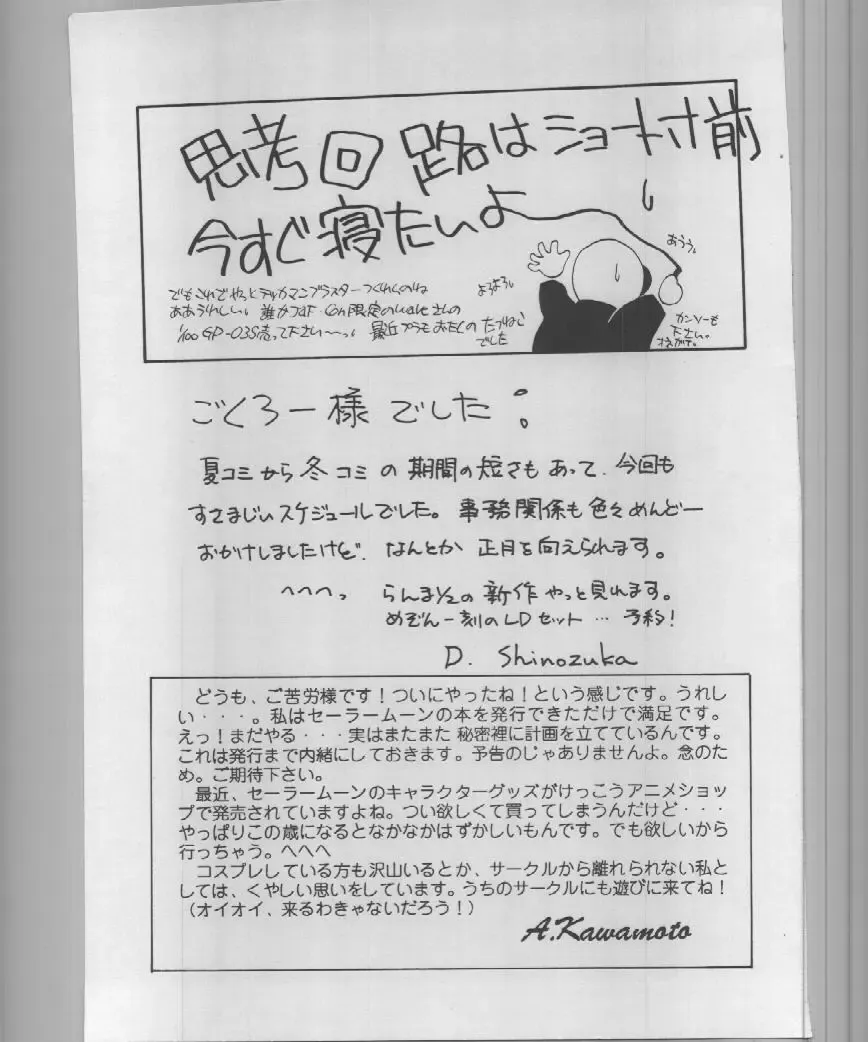 思考回路はショート寸前
今すぐ寝たいよ
おうう。
よろよろ。
でもこれでやっとテッカマンブラスターつくれるのね
ああうれしい。誰かJAF・Con限定のWaveさんの
1/100 GP-03S売って下さい〜〜っ。最近プラモおたくの たつねこ
でした
カンソーも
下さい。
ごくろー様でした。
夏コミから冬コミの期間の短さもあって、今回も
すさまじいスケジュールでした。事務関係も色々めんどー
おかけしましたけど、なんとか正月を向えられます。
へへへっ らんま1/2の新作やっと見れます。
めぞん一刻のLDセット…予約!
D. Shinozuka
どうも、ご苦労様です！ついにやったね！という感じです。うれし
い・・・。私はセーラームーンの本を発行できただけで満足です。
えっ！まだやる・・・実はまたまた秘密裡に計画を立てているんです。
これは発行まで内緒にしておきます。予告のじゃありませんよ。念のた
め。ご期待下さい。
最近、セーラームーンのキャラクターグッズがけっこうアニメショッ
プで発売されていますよね。つい欲しくて買ってしまうんだけど・・・
やっぱりこの歳になるとなかなかはずかしいもんです。でも欲しいから
行っちゃう。へへへ
コスプレしている方も沢山いるとか、サークルから離れられない私と
しては、くやしい思いをしています。うちのサークルにも遊びに来てね！
（オイオイ、来るわきゃないだろう！）
A.Kawamoto